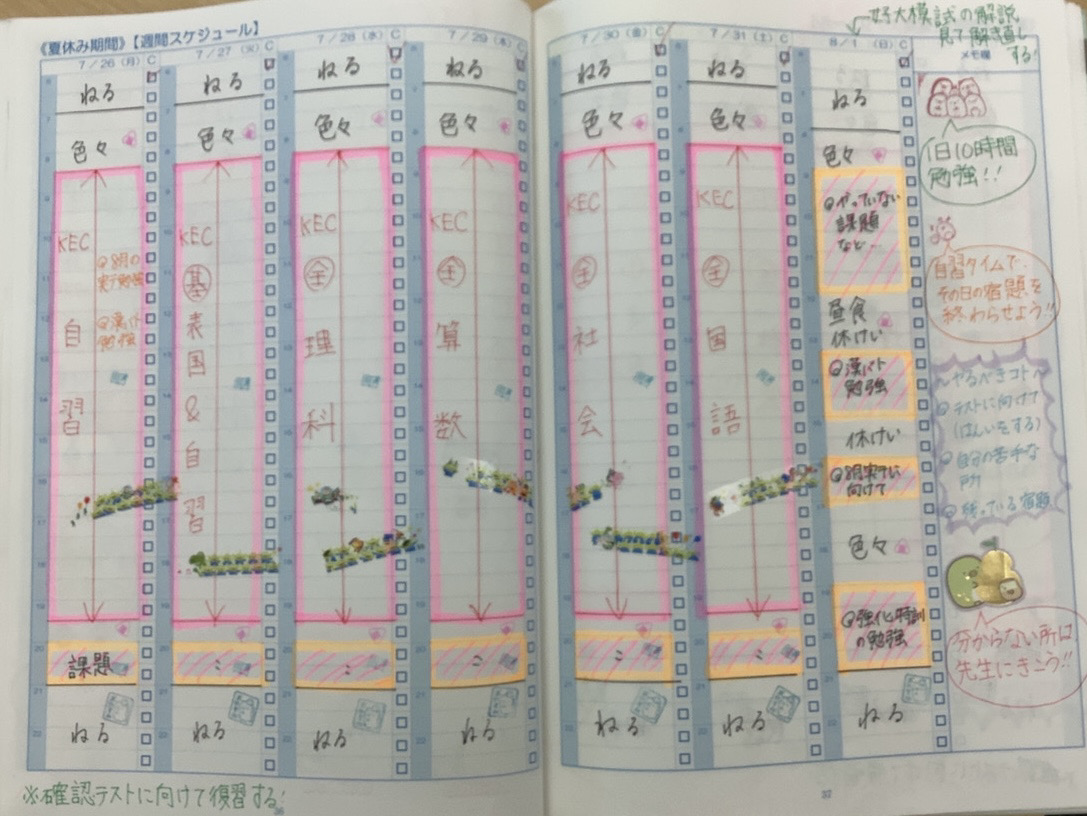 《夏休み期間》【週間スケジュール】
7/26(月) C
ねる
色々
KEC
自
習
@8月の
実力勉強
@漢バト
勉強
課題
ねる
7/27(火) C
ねる
色々
KEC
基
表
国
&
自
習
ねる
7/28(水) C
ねる
色々
KEC
全
理
科
ねる
7/29(木) C
ねる
色々
KEC
全
算
数
ねる
※確認テストに向けて復習する!
7/30(金) C
ねる
色々
KEC
全
社
会
ねる
7/31(土) C
ねる
色々
KEC
全
国
語
ねる
8/1(日) C
ねる
色々
@やっていない
課題
など…
昼食
休けい
@漢バト
勉強
休けい
@8月実力に
向けて
色々
@強化特訓
の勉強
ねる
大模試の解説
見て解き直し
する!
メモ欄
1日10時間
勉強!!
自習タイムで、
その日の宿題を
終わらせよう!!
〜やるべきコト〜
@テストに向けて
(はんいをする)
@自分の苦手な
所
@残っている宿題
分からない所は
先生にきこう!!
37